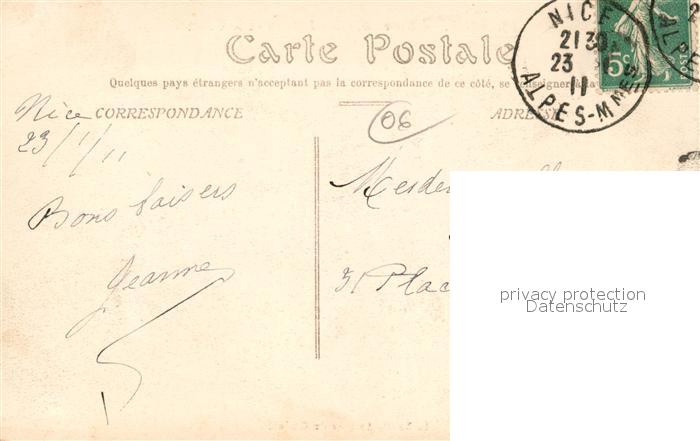 Carte Postale
Quelques pays étrangers n'acceptant pas la correspondance de ce côté, se renseigner à la
CORRESPONDANCE
ADRESSE
NICE
21 30
23
11
ALPES-MMES
5c
POSTES
06
Nice
23/1/11
Bons baisers
Jeanne
31 Plac
privacy protection
Datenschutz